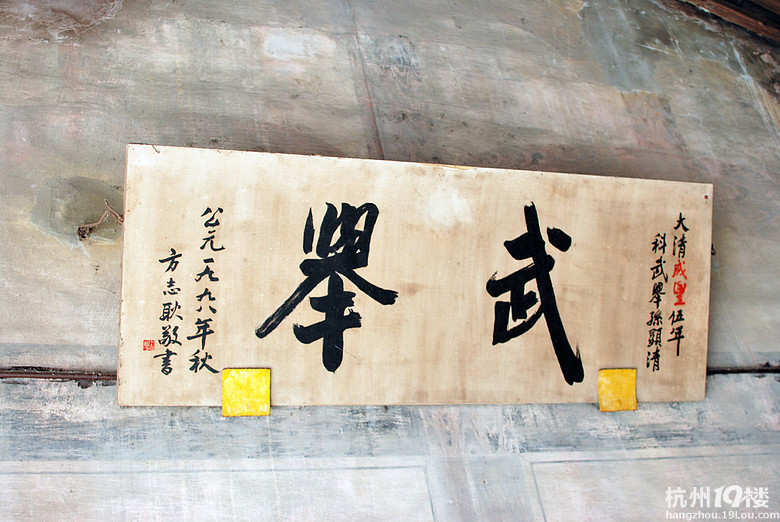 大清咸豐伍年
科武舉孫顕清
武舉
公元一九九八年秋
方志耿敬書
杭州19楼
hangzhou.19lou.com